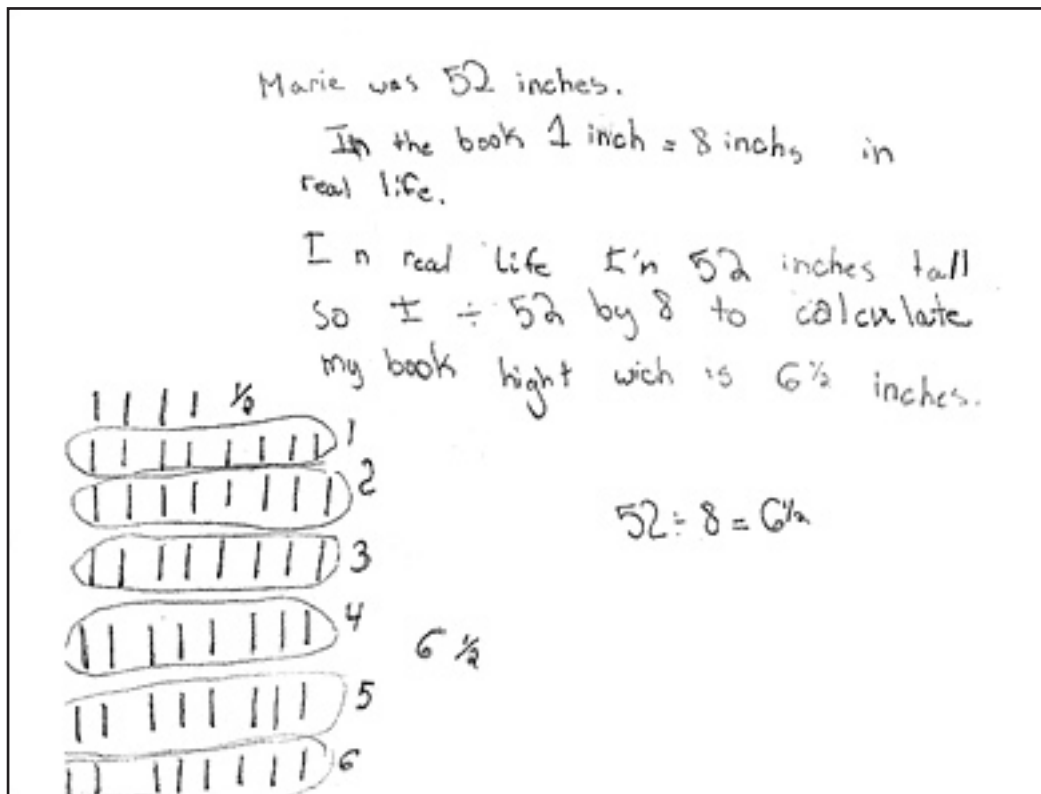 Marie was 52 inches.
In the book 1 inch = 8 inchs in
real life.
In real life I'n 52 inches tall
so I ÷ 52 by 8 to calculate
my book hight wich is 6 ½ inches.
½
1
2
3
4
5
6
52 ÷ 8 = 6½
6 ½